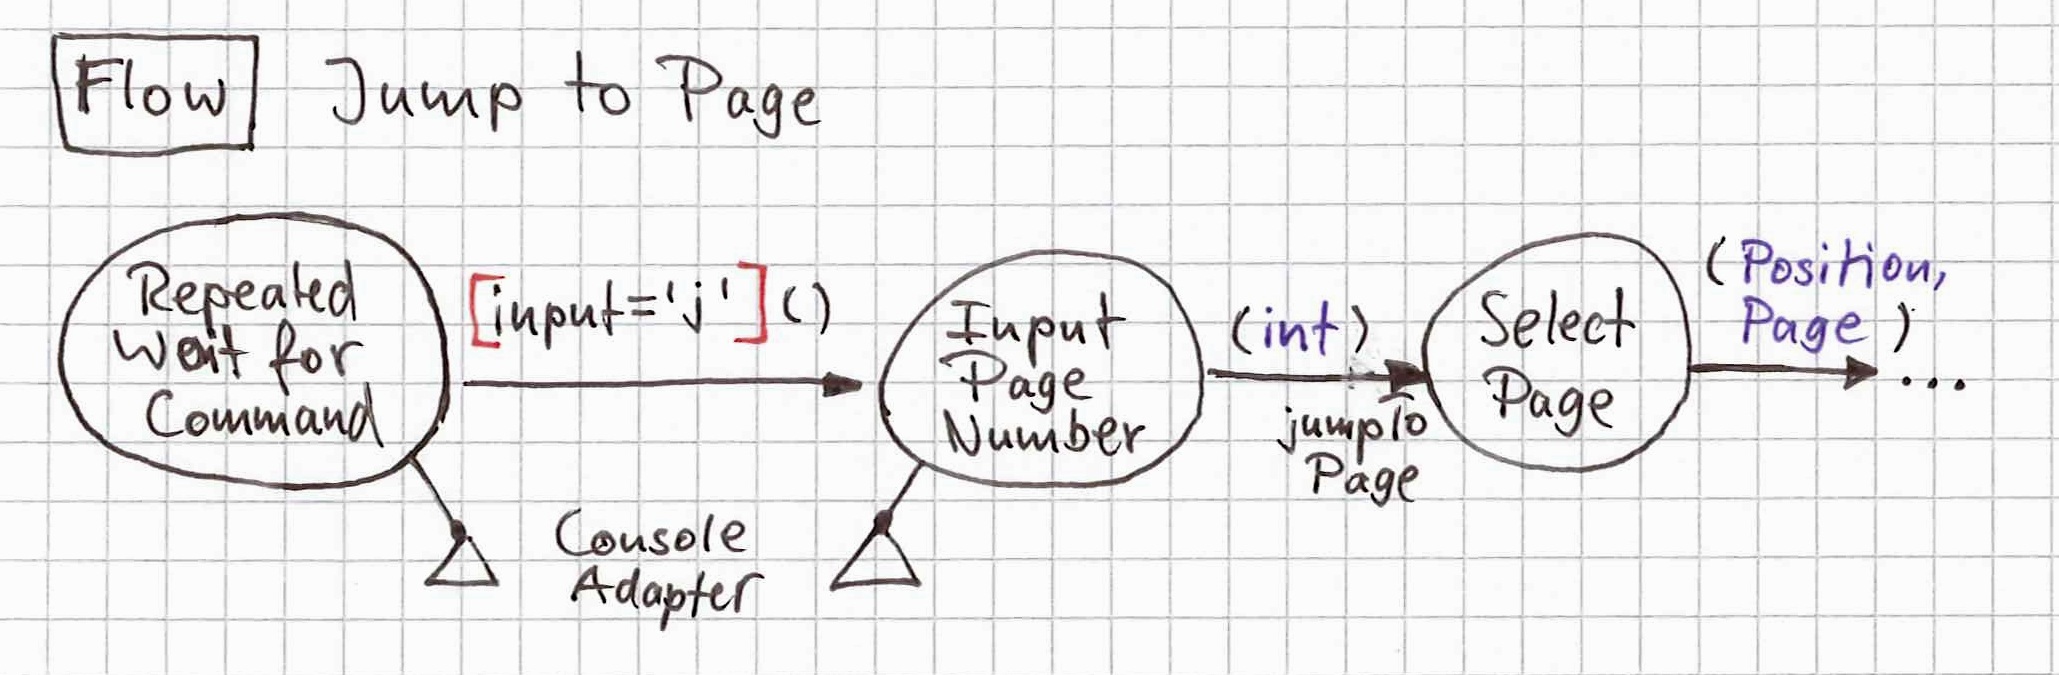 Flow Jump to Page
Repeated
Wait for
Command
[input='j'] ()
Input
Page
Number
(int)
jumpTo
Page
Select
Page
(Position,
Page)
...
Console
Adapter